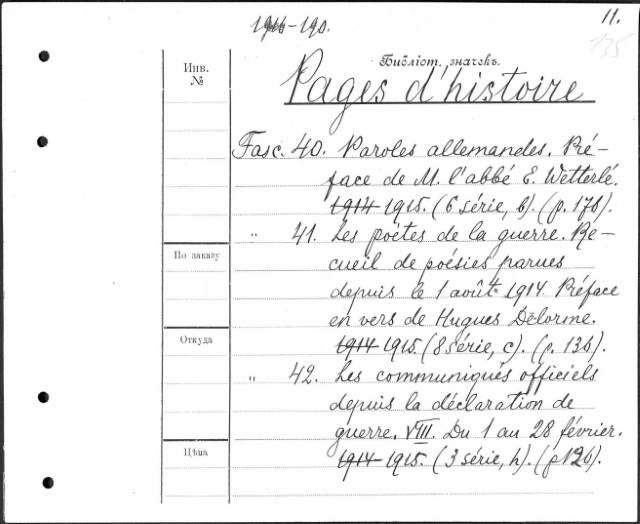 1916-190.
11.
135
Библіот. значекъ.
Инв.
№
Pages d'histoire
Fasc. 40. Paroles allemandes. Pré-
face de M. l'abbé E. Wetterlé.
1914-1915. (6 série, b). (p. 176).
" 41. Les poètes de la guerre. Re-
cueil de poésies parues
По заказу
depuis le 1 août 1914. Préface
en vers de Hugues Delorme.
Откуда
1914-1915. (8 série, c). (p. 136).
" 42. Les communiqués officiels
depuis la déclaration de
guerre. VIII. Du 1 au 28 février.
Цѣна
1914-1915. (3 série, h). (p 126).